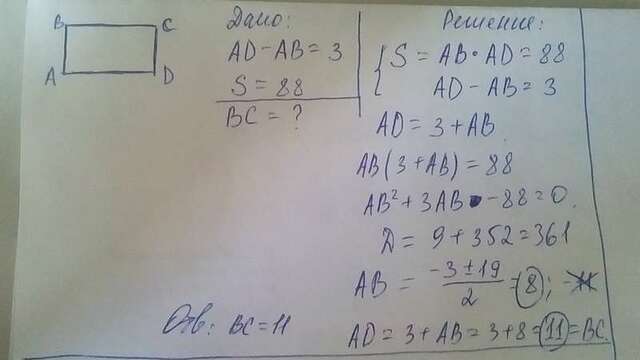 B C
A D
Дано:
AD - AB = 3
S = 88
BC = ?
Решение:
{ S = AB • AD = 88
AD - AB = 3
AD = 3 + AB
AB(3 + AB) = 88
AB² + 3AB - 88 = 0.
D = 9 + 352 = 361
AB = (-3 ± 19)/2 = 8; -11
AD = 3 + AB = 3 + 8 = 11 = BC.
Отв: BC = 11